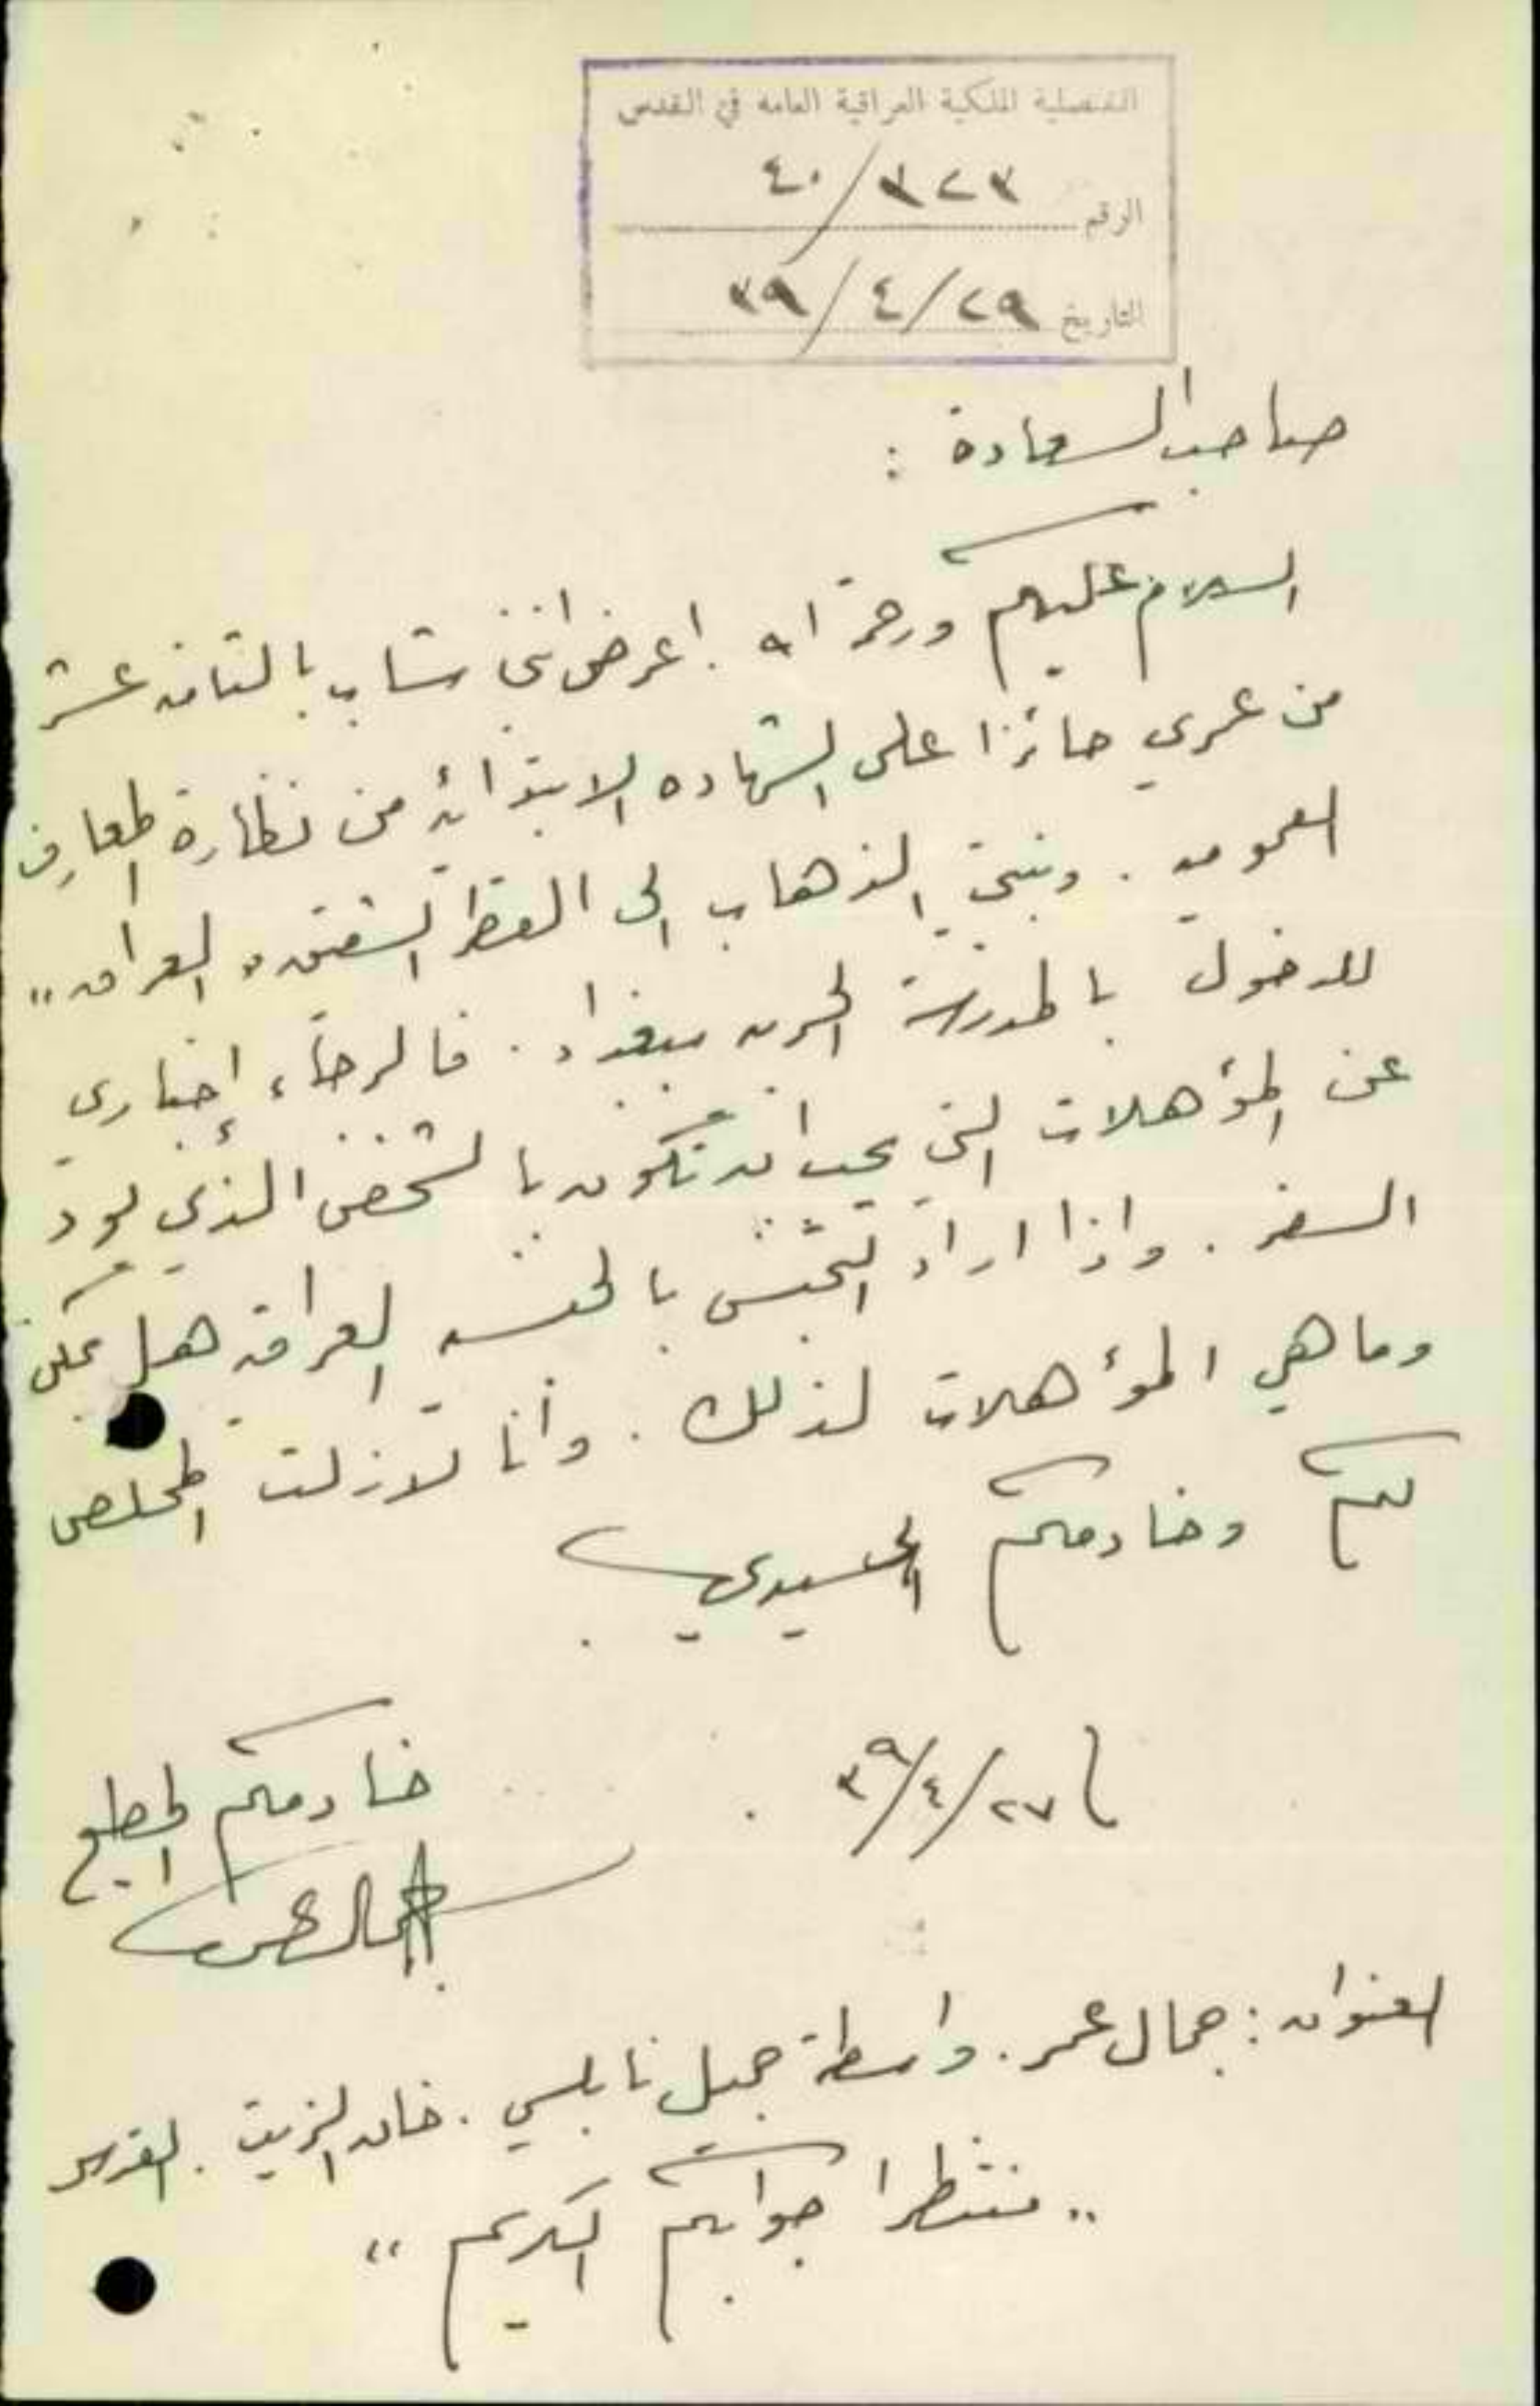 القنصلية الملكية العراقية العامه في القدس
الرقم ٣٢٣/٤٠
التاريخ ٢٩/٤/٣٩
صاحب السعادة :
السلام عليكم ورحمة الله . اعرض انني شاب بالثامنه عشر
من عمري حائزا على الشهاده الابتدائية من نظارة المعارف
العموميه . وبنيتي الذهاب الى القطر الشقيق " العراق "
للدخول بالمدرسة الحربيه ببغداد . فالرجاء إخباري
عن المؤهلات التي يجب ان تكون بالشخص الذي يود
السفر . واذا اراد التجنس بالجنسيه العراقيه هل يمكن
وما هي المؤهلات لذلك . وأنا لازلت المخلص
لكم وخادمكم
٢٧/٤/٣٩ .
خادمكم المطيع
جمال عمر
العنوان : جمال عمر . واسطة جميل نابلسي . خان الزيت . القدس
" منتظرا جوابكم الكريم "